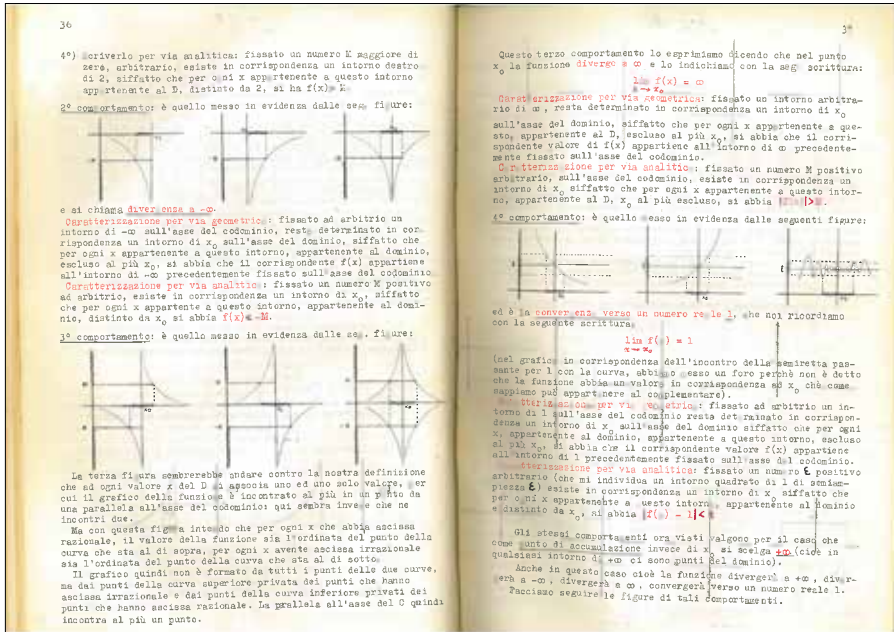 36
4°) scriverlo per via analitica: fissato un numero M maggiore di
zero, arbitrario, esiste in corrispondenza un intorno destro
di 2, siffatto che per ogni x appartenente a questo intorno
appartenente al D, distinto da 2, si ha f(x) > M.
2° comportamento: è quello messo in evidenza dalle seg. figure:
e si chiama divergenza a -∞.
Caratterizzazione per via geometrica: fissato ad arbitrio un
intorno di -∞ sull'asse del codominio, resta determinato in cor
rispondenza un intorno di x₀ sull'asse del dominio, siffatto che
per ogni x appartenente a questo intorno, appartenente al dominio,
escluso al più x₀, si abbia che il corrispondente f(x) appartiene
all'intorno di -∞ precedentemente fissato sull'asse del codominio
Caratterizzazione per via analitica: fissato un numero M positivo
ad arbitrio, esiste in corrispondenza un intorno di x₀, siffatto
che per ogni x appartente a questo intorno, appartenente al domi-
nio, distinto da x₀ si abbia f(x)< -M.
3° comportamento: è quello messo in evidenza dalle seg. figure:
La terza figura sembrerebbe andare contro la nostra definizione
che ad ogni valore x del D si associa uno ed uno solo valore, per
cui il grafico della funzione è incontrato al più in un punto da
una parallela all'asse del codominio: qui sembra invece che ne
incontri due.
Ma con questa figura intendo che per ogni x che abbia ascissa
razionale, il valore della funzione sia l'ordinata del punto della
curva che sta al di sopra, per ogni x avente ascissa irrazionale
sia l'ordinata del punto della curva che sta al di sotto.
Il grafico quindi non è formato da tutti i punti delle due curve,
ma dai punti della curva superiore privata dei punti che hanno
ascissa irrazionale e dai punti della curva inferiore privati dei
punti che hanno ascissa razionale. La parallela all'asse del C quindi
incontra al più un punto.
Questo terzo comportamento lo esprimiamo dicendo che nel punto
x₀ la funzione diverge a ∞ e lo indichiamo con la seg. scrittura:
lim f(x) = ∞
x→x₀
Caratterizzazione per via geometrica: fissato un intorno arbitra-
rio di ∞, resta determinato in corrispondenza un intorno di x₀
sull'asse del dominio, siffatto che per ogni x appartenente a que-
sto, appartenente al D, escluso al più x₀, si abbia che il corri-
spondente valore di f(x) appartiene all'intorno di ∞ precedente-
mente fissato sull'asse del codominio.
Caratterizzazione per via analitica: fissato un numero M positivo
arbitrario, sull'asse del codominio, esiste in corrispondenza un
intorno di x₀ siffatto che per ogni x appartenente a questo intor-
no, appartenente al D, x₀ al più escluso, si abbia |f(x)|>M.
4° comportamento: è quello messo in evidenza dalle seguenti figure:
ed è la convergenza verso un numero reale l, che noi ricordiamo
con la seguente scrittura
lim f(x) = l
x→x₀
(nel grafico in corrispondenza dell'incontro della semiretta pas-
sante per l con la curva, abbiamo messo un foro perchè non è detto
che la funzione abbia un valore in corrispondenza ad x₀ chè come
sappiamo può appartenere al complementare).
Caratterizzazione per via geometrica: fissato ad arbitrio un in-
torno di l sull'asse del codominio resta determinato in corrispon-
denza un intorno di x₀ sull'asse del dominio siffatto che per ogni
x, appartenente al dominio, appartenente a questo intorno, escluso
al più x₀, si abbia che il corrispondente valore f(x) appartiene
all'intorno di l precedentemente fissato sull'asse del codominio.
Caratterizzazione per via analitica: fissato un numero ε positivo
arbitrario (che mi individua un intorno quadrato di l di semiam-
piezza ε) esiste in corrispondenza un intorno di x₀ siffatto che
per ogni x appartenente a questo intorno, appartenente al dominio
e distinto da x₀, si abbia |f(x) - l|< ε
Gli stessi comportamenti ora visti valgono per il caso che
come punto di accumulazione invece di x₀ si scelga +∞ (cioè in
qualsiasi intorno di +∞ ci sono punti del dominio).
Anche in questo caso cioè la funzione divergerà a +∞, diver-
gerà a -∞, divergerà a ∞, convergerà verso un numero reale l.
Facciamo seguire le figure di tali comportamenti.